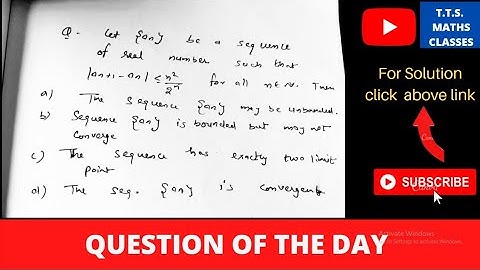 Q. Let {an} be a sequence
of real number such that
|an+1 - an| ≤ n²/2ⁿ for all n∈N. Then
a) The sequence {an} may be unbounded.
b) Sequence {an} is bounded but may not
converge
c) The sequence has exactly two limit
point
d) The seq. {an} is convergent
T.T.S.
MATHS
CLASSES
For Solution
click above link
SUBSCRIBE
Activate Windows
QUESTION OF THE DAY